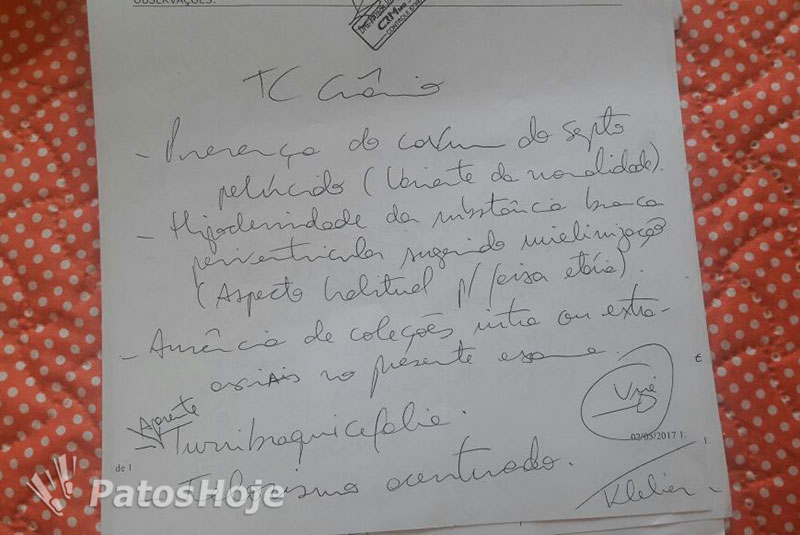 OBSERVAÇÕES:
TC Crânio
- Presença do cavum do septo
pelúcido (Variante da normalidade).
- Hipodensidade da substância branca
periventricular sugerindo mielinização
(Aspecto habitual p/ faixa etária).
- Ausência de coleções intra ou extra-
axiais no presente exame.
Aparente
- Turribraquicefalia.
acentuado.
02/05/2017 1
de 1
Kleber
PatosHoje